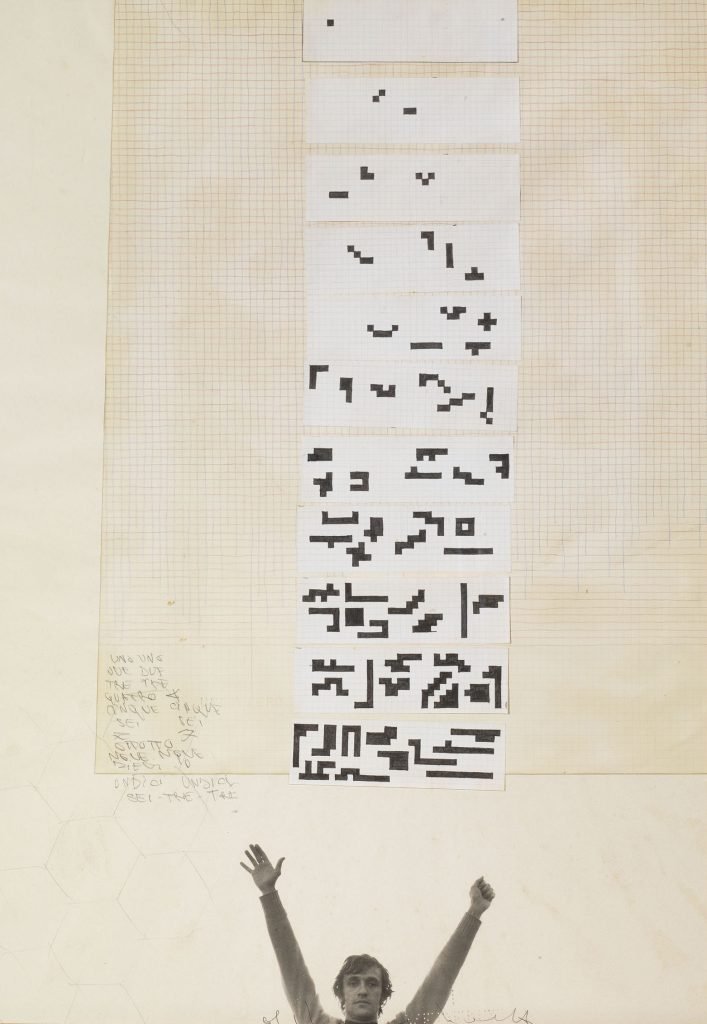 UNO UNO
DUE DUE
TRE TRE
QUATTRO 4
CINQUE CINQUE
SEI SEI
XI 7
OTTOTTO
NOVE NOVE
DIECI 10
UNDICI UNDICI
SEI-TRE-TRE